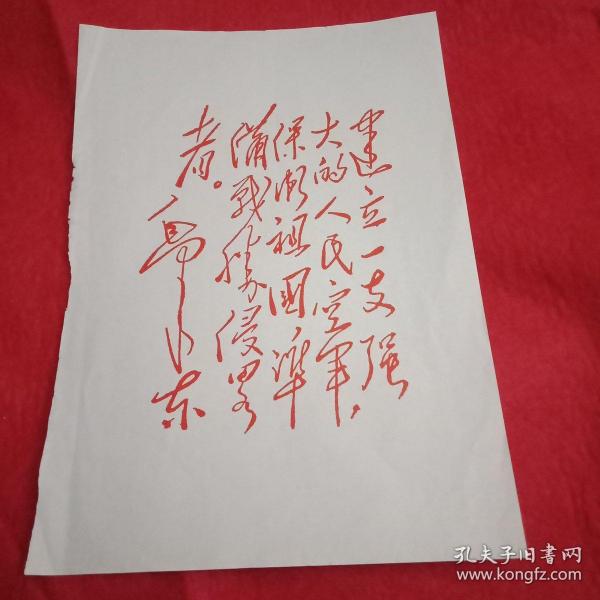 建立一支强
大的人民空軍，
保衛祖國，準
備戰勝侵畧
者。
毛泽东
孔夫子旧书网
www.kongfz.com